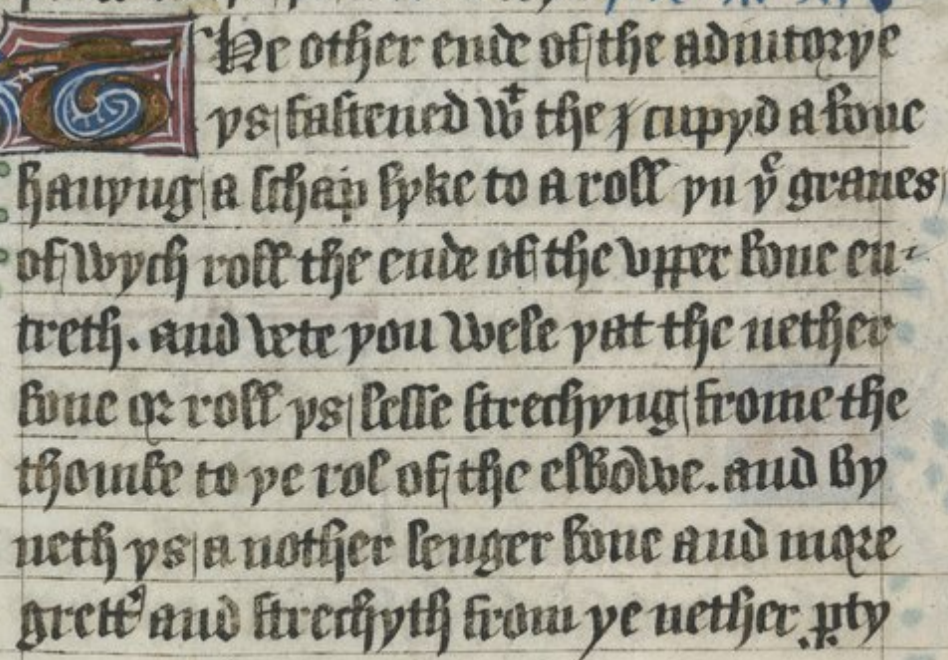 The other ende of the adiutorye
ys fastened wt the j cupyd a bone
hauyng a schap lyke to a roll yn ye graues
of wych roll the ende of the vpper bone en-
treth. and wete you wele yat the nether
bone or roll ys lesse strechyng frome the
thombe to ye rol of the elbowe. and by
neth ys a nother lenger bone and more
grett' and strechyth from ye nether pty